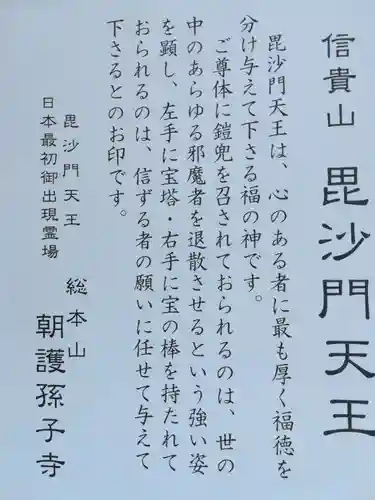 信貴山 毘沙門天王
毘沙門天王は、心のある者に最も厚く福徳を
分け与えて下さる福の神です。
ご尊体に鎧兜を召されておられるのは、世の
中のあらゆる邪魔者を退散させるという強い姿
を顕し、左手に宝塔・右手に宝の棒を持たれて
おられるのは、信ずる者の願いに任せて与えて
下さるとのお印です。
毘沙門天王
日本最初御出現霊場
総本山
朝護孫子寺